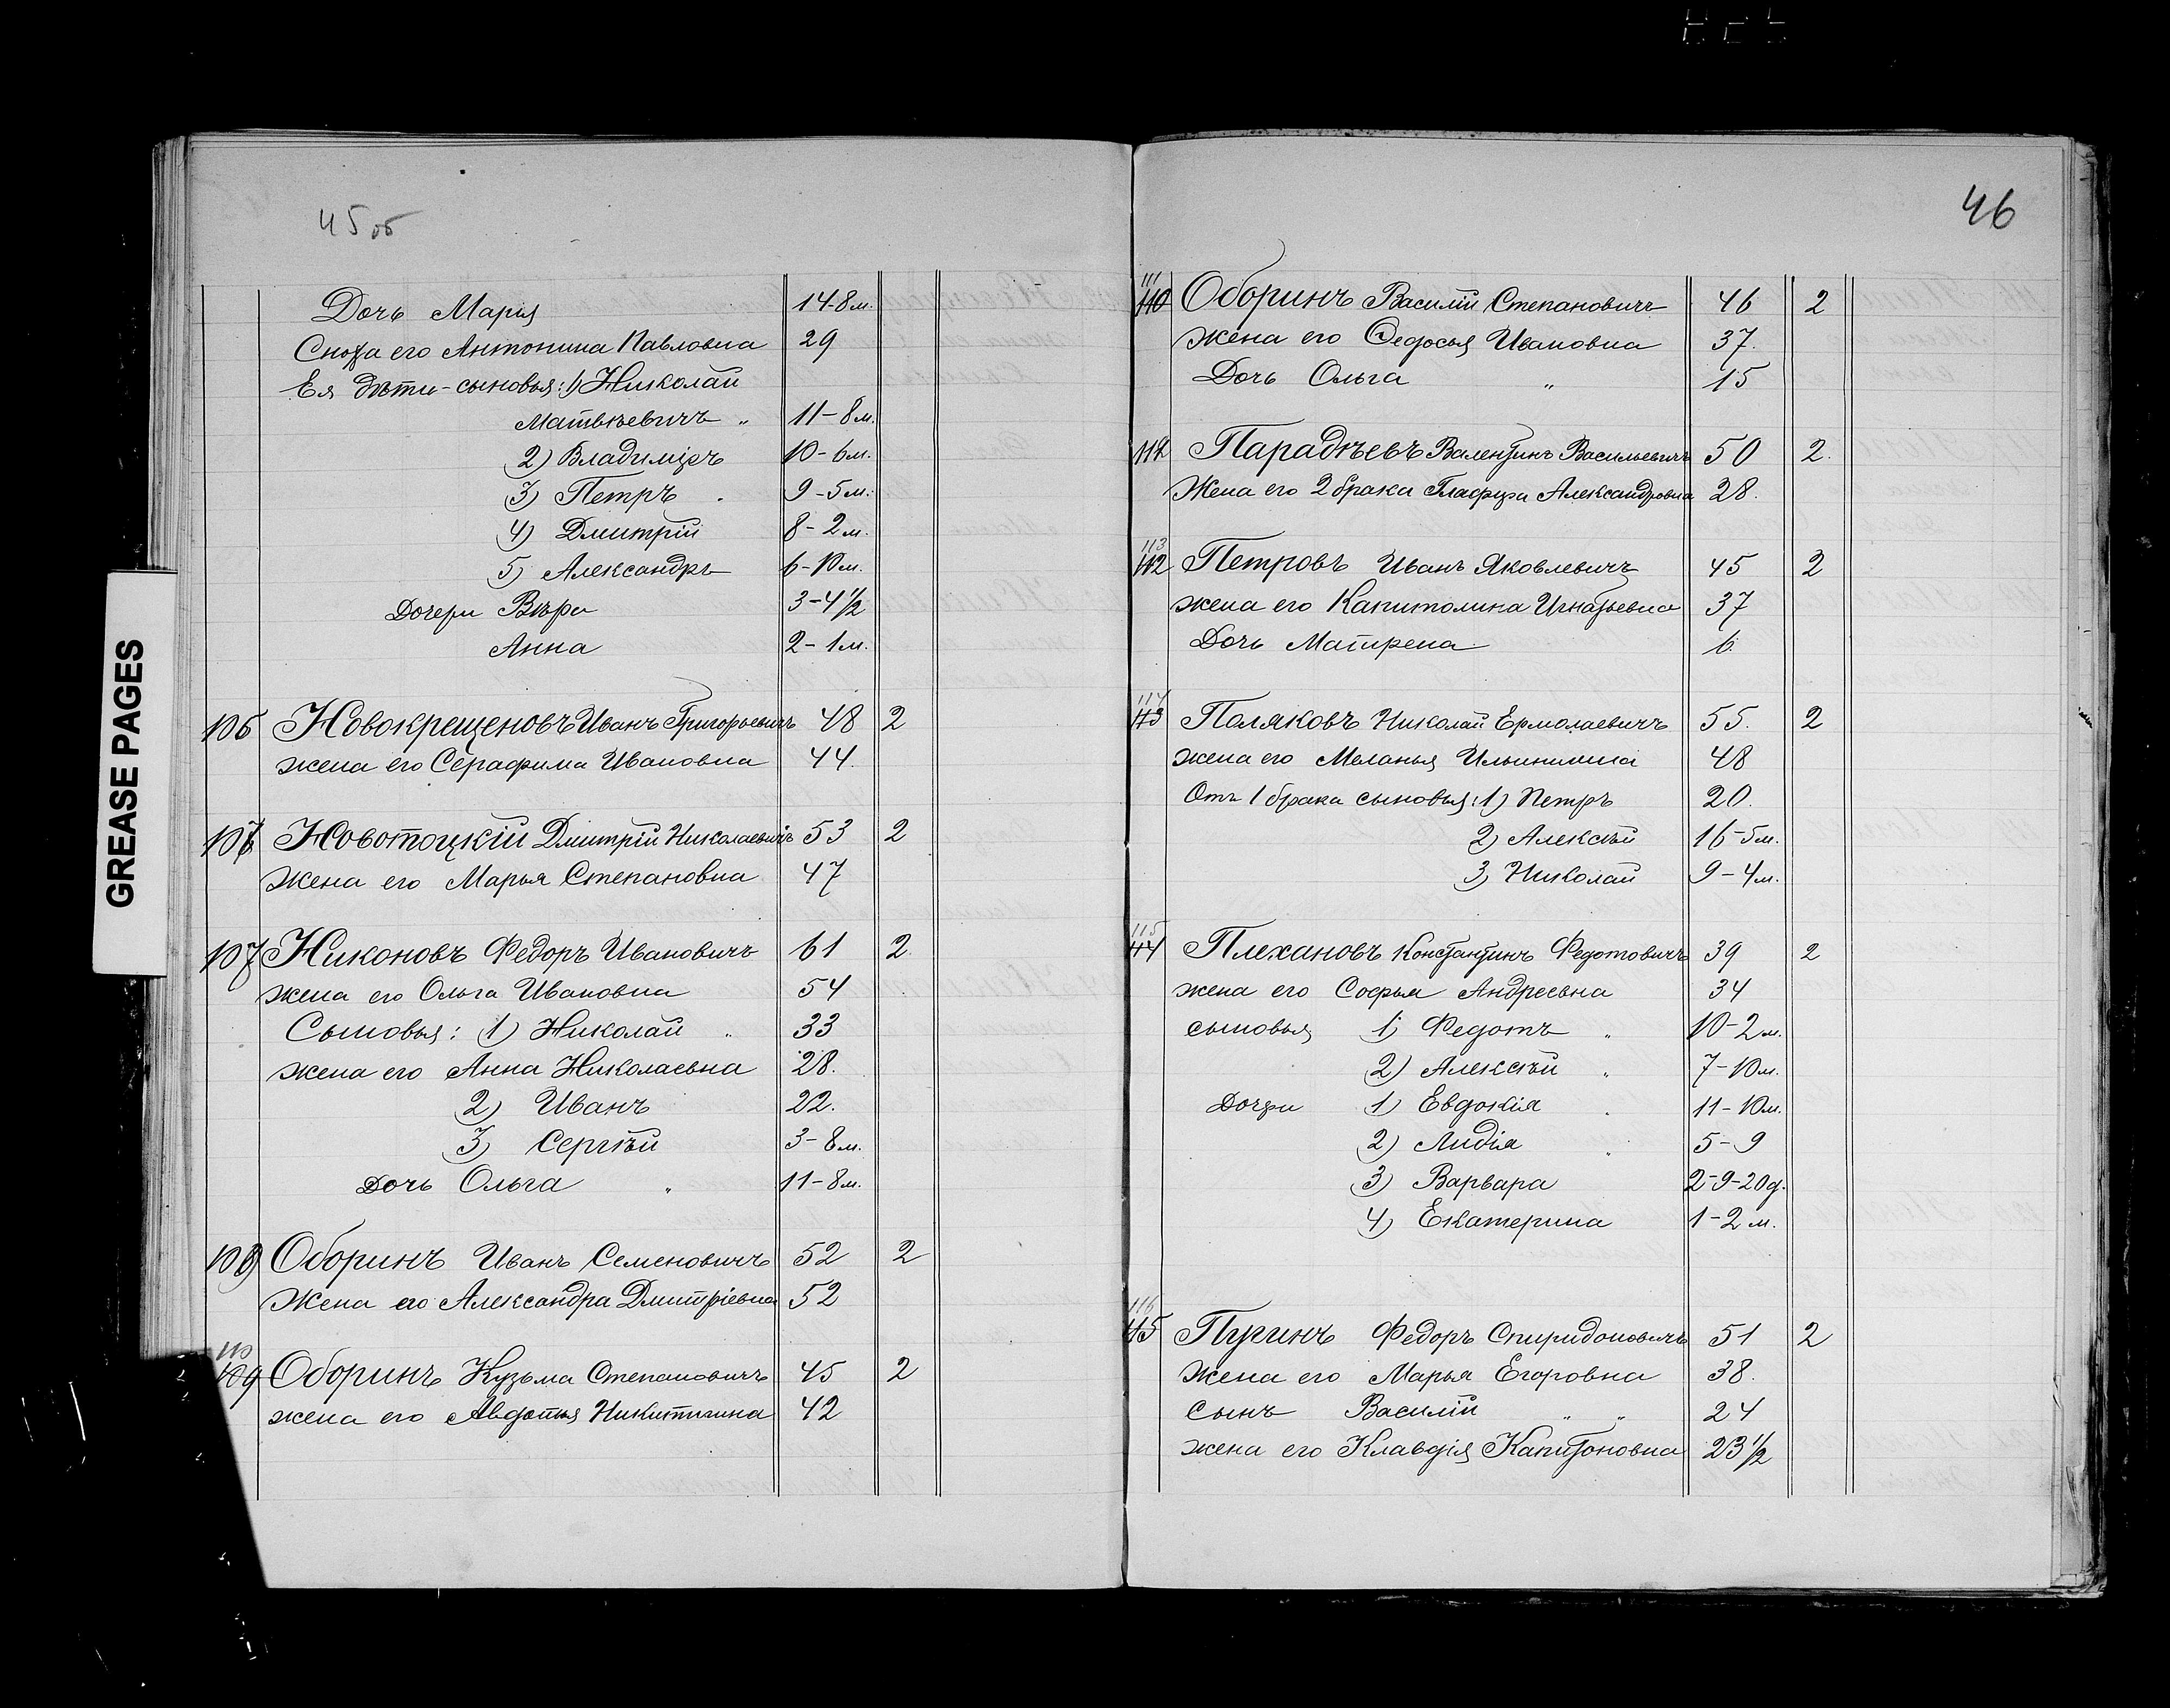 45 об
Дочь Марья 14-8 м.
Сноха его Антонина Павловна 29
Ея дѣти-сыновья: 1) Николай
Матвѣевичъ „ 11-8 м.
2) Владиміръ 10-6 м.
3) Петръ 9-5 м.
4) Дмитрій 8-2 м.
5) Александръ 6-10 м.
Дочери Вѣра 3-4 1/2
Анна 2-1 м.
106 Новокрещеновъ Иванъ Григорьевичъ 48 2
жена его Серафима Ивановна 44.
107 Новотоцкій Дмитрій Николаевичъ 53 2
Жена его Марья Степановна 47
107 Никоновъ Федоръ Ивановичъ 61 2
жена его Ольга Ивановна 54
Сыновья: 1) Николай „ 33
жена его Анна Николаевна 28.
2) Иванъ 22.
3) Сергѣй 3-8 м.
Дочь Ольга „ 11-8 м.
109 Оборинъ Иванъ Семеновичъ 52 2
Жена его Александра Дмитріевна 52
110
109 Оборинъ Кузьма Степановичъ 45 2
жена его Авдотья Никитична 42
GREASE PAGES
46
111
110 Оборинъ Василій Степановичъ 46 2
жена его Федосья Ивановна 37.
Дочь Ольга „ 15
112 Парадѣевъ Валентинъ Васильевичъ 50 2.
Жена его 2 брака Глафира Александровна 28.
113
112 Петровъ Иванъ Яковлевичъ 45 2
жена его Капитолина Игнатьевна 37
Дочь Матрена 6.
114
113 Поляковъ Николай Ермолаевичъ 55. 2
жена его Меланья Ильинишна 48
Отъ 1 брака сыновья: 1) Петръ 20.
2) Алексѣй 16-5 м.
3) Николай 9-4 м.
115
114 Плехановъ Константинъ Федотовичъ 39 2
жена его Софья Андреевна 34
сыновья 1) Федотъ „ 10-2 м.
2) Алексѣй „ 7-10 м.
Дочери 1) Евдокія 11-10 м.
2) Лидія „ 5-9
3) Варвара 2-9-20 д.
4) Екатерина 1-2 м.
116
115 Пугинъ Федоръ Спиридоновичъ 51 2
Жена его Марья Егоровна 38.
Сынъ Василій „ „ 24
жена его Клавдія Капитоновна 23 1/2